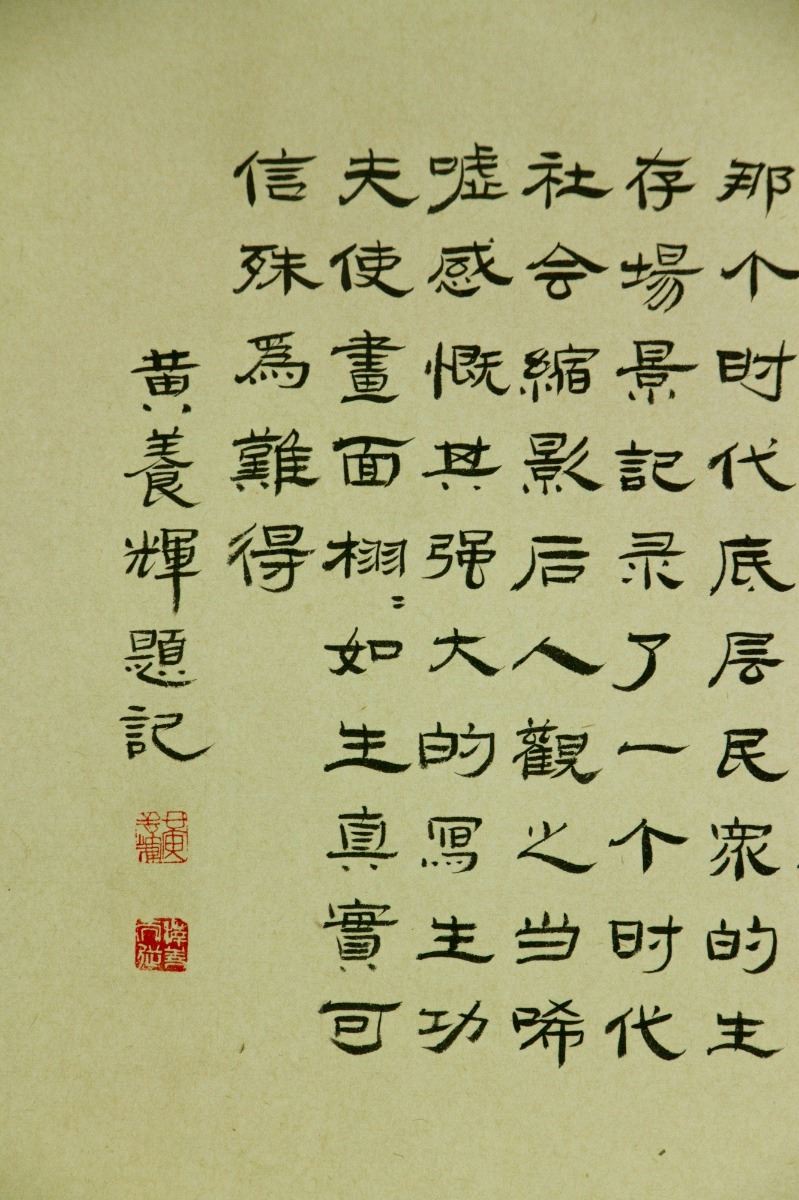 那个时代底层民眾的生
存場景記录了一个时代
社会縮影后人觀之当唏
嘘感慨其强大的寫生功
夫使畫面栩〻如生真實可
信殊為難得
黄養輝題記